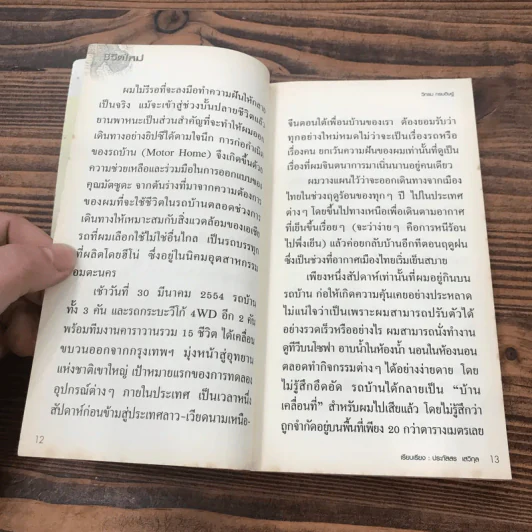 ชีวิตใหม่
ผมไม่รีรอที่จะลงมือทำความฝันให้กลาย
เป็นจริง แม้จะเข้าสู่ช่วงบั้นปลายชีวิตแล้ว
ยานพาหนะเป็นส่วนสำคัญที่จะทำให้ผมออก
เดินทางอย่างยิปซีได้ดามใจนึก การก่อกำเนิด
ของรถบ้าน (Motor Home) จึงเกิดขึ้นด้วย
ความช่วยเหลือและร่วมมือในการออกแบบของ
คุณมัตซูดะ จากต้นร่างที่มาจากความต้องการ
ของผมที่จะใช้ชีวิตในรถบ้านตลอดช่วงการ
เดินทางให้เหมาะสมกับสิ่งแวดล้อมของเอเชีย
รถที่ผมเลือกใช้ไม่ใช่อื่นไกล เป็นรถบรรทุก
ที่ผลิตโดยฮีโน่ ซึ่งอยู่ในนิคมอุตสาหกรรม
อมตะนคร
เช้าวันที่ 30 มีนาคม 2554 รถบ้าน
ทั้ง 3 คัน และรถกระบะวีโก้ 4WD อีก 2 คัน
พร้อมทีมงานคาราวานรวม 15 ชีวิต ได้เคลื่อน
ขบวนออกจากกรุงเทพฯ มุ่งหน้าสู่อุทยาน
แห่งชาติเขาใหญ่ เป้าหมายแรกของการทดลอง
อุปกรณ์ต่างๆ ภายในประเทศ เป็นเวลาหนึ่ง
สัปดาห์ก่อนข้ามสู่ประเทศลาว-เวียดนามเหนือ-
12
วิกรม กรมดิษฐ์
จีนตอนใต้เพื่อนบ้านของเรา ต้องยอมรับว่า
ทุกอย่างใหม่หมดไม่ว่าจะเป็นเรื่องรถหรือ
เรื่องคน ยกเว้นความฝันของผมเท่านั้นที่ดูเป็น
เรื่องที่ผมจินตนาการมาเนิ่นนานอยู่คนเดียว
ผมวางแผนไว้ว่าจะออกเดินทางจากเมือง
ไทยในช่วงฤดูร้อนของทุกๆ ปี ไปในประเทศ
ต่างๆ โดยขึ้นไปทางเหนือเพื่อเดินตามอากาศ
ที่เย็นขึ้นเรื่อยๆ (จะว่าง่ายๆ คือการหนีร้อน
ไปพึ่งเย็น) แล้วค่อยกลับบ้านอีกทีตอนฤดูฝน
ซึ่งเป็นช่วงที่อากาศเมืองไทยเริ่มเย็นสบาย
เพียงหนึ่งสัปดาห์เท่านั้นที่ผมอยู่กินบน
รถบ้าน ก่อให้เกิดความคุ้นเคยอย่างประหลาด
ไม่แน่ใจว่าเป็นเพราะผมสามารถปรับตัวได้
อย่างรวดเร็วหรืออย่างไร ผมสามารถนั่งทำงาน
ดูทีวีบนโซฟา อาบน้ำในห้องน้ำ นอนในห้องนอน
ตลอดทำกิจกรรมต่างๆ ได้อย่างง่ายดาย โดย
ไม่รู้สึกอึดอัด รถบ้านได้กลายเป็น “บ้าน
เคลื่อนที่” สำหรับผมไปเสียแล้ว โดยไม่รู้สึกว่า
ถูกจำกัดอยู่บนพื้นที่เพียง 20 กว่าตารางเมตรเลย
เรียบเรียง : ประภัสสร เสวิกุล 13